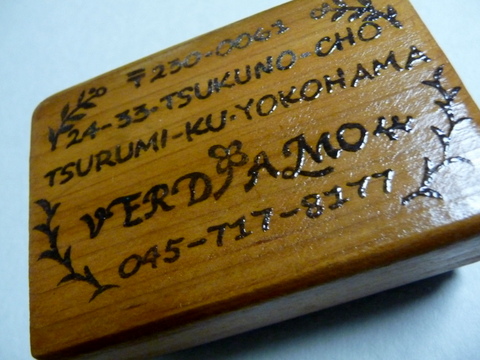 〒230-0061
24-33-TSUKUNO-CHO
TSURUMI-KU-YOKOHAMA
VERDIAMO
045-717-8177